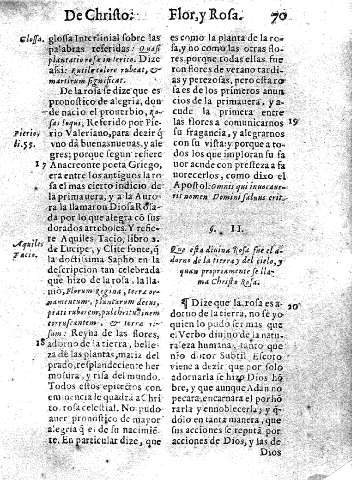 De Christo. Flor, y Rosa. 70
Glossa.
glossa Interlinial sobre las
palabras referidas: Quasi
plantatio rosa in Ierico. Dize
assi: Rutilo colore rubeat, &
martirum significat.
De la rosa se dize que es
pronostico de alegria, don-
de nacio el prouerbio, Ro-
sas loqui, Referido por Pie-
rio Valeriano, para dezir q̃
vno dà buenas nueuas, y ale
gres; porque segun refiere
Anacreonte poeta Griego,
era entre los antiguos la ro
sa el mas cierto indicio de
la primauera, y a la Auro-
ra la llamaron Diosa Rosa-
da por lo que alegra cō sus
dorados arreboles. Y refie-
re Aquiles Tacio, libro 2.
de Lucipe, y Clitefonte, q̃
la doctissima Sapho en la
descripcion tan celebrada
que hizo de la rosa, la lla-
mò, Florum Regina, terræ or-
namentum, plantarum decus,
prati ruborem, pulchritudinem
corruscantem, & terra ri-
sum: Reyna de las flores,
adorno de la tierra, belle-
za de las plantas, matiz del
prado, resplandeciente her
mosura, y risa del mundo.
Todos estos epitetos con
eminencia le quadra a Chri
sto rosa celestial. No pudo
auer pronostico de mayor
alegria q̃ el de su nacimiẽ-
te. En particular dize, que
Pierio
li. 55.
17
Aquiles
Tacio.
18
es como la planta de la ro-
sa, y no como las otras flo-
res, porque todas ellas fue
ron flores de verano tardi-
as, y perezosas, pero esta ro
sa es de los primeros anun-
cios de la primauera, y a-
cude la primera entre
las flores a comunicarnos
su fragancia, y alegrarnos
con su vista: y porque a to-
dos los que inploran su fa
uor acude con presteza a fa
uorecerlos, como dixo el
Apostol: omnis qui inuocaue-
rit nomen Domini saluus erit.
19
§. II.
Que esta diuina Rosa fue el a-
dorno de la tierra y del cielo, y
quan propriamente se lla-
ma Christo Rosa.
¶ Dize que la rosa es a-
dorno de la tierra, no se yo
quien lo pudo ser mas que
el Verbo diuino de la natu-
raleza humana, tanto que
nro dictor Subtil Escoto
viene a dezir que por solo
adornarla se hizo Dios hō
bre, y que aunque Adan no
pecara, encarnara el por hō
rarla y ennoblecerla; y q̃-
dolo en tanta manera, que
sus acciones se reputā por
acciones de Dios, y las de
20
Dios